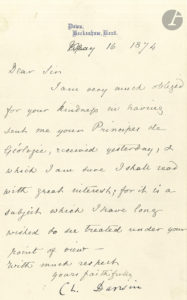 Down,
Beckenham, Kent.
May 16 1874
Dear Sir
I am very much obliged
for your kindness in having
sent me your Principes de
Géologie, received yesterday, &
which I am sure I shall read
with great interest; for it is a
subject which I have long
wished to see treated under your
point of view —
With much respect
yours faithfully
Ch. Darwin